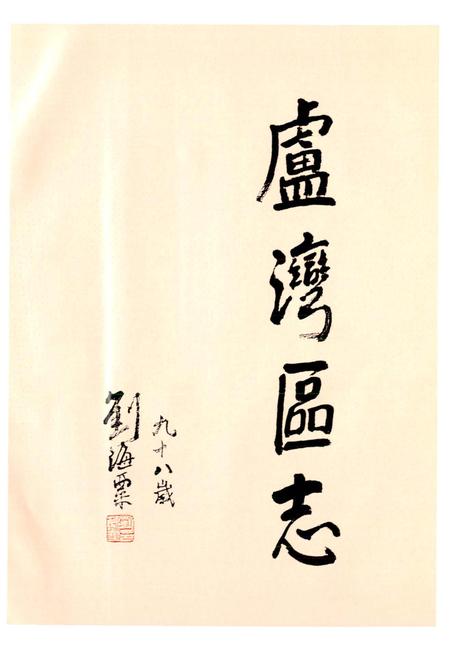 盧灣區志
九十八歲
劉海粟